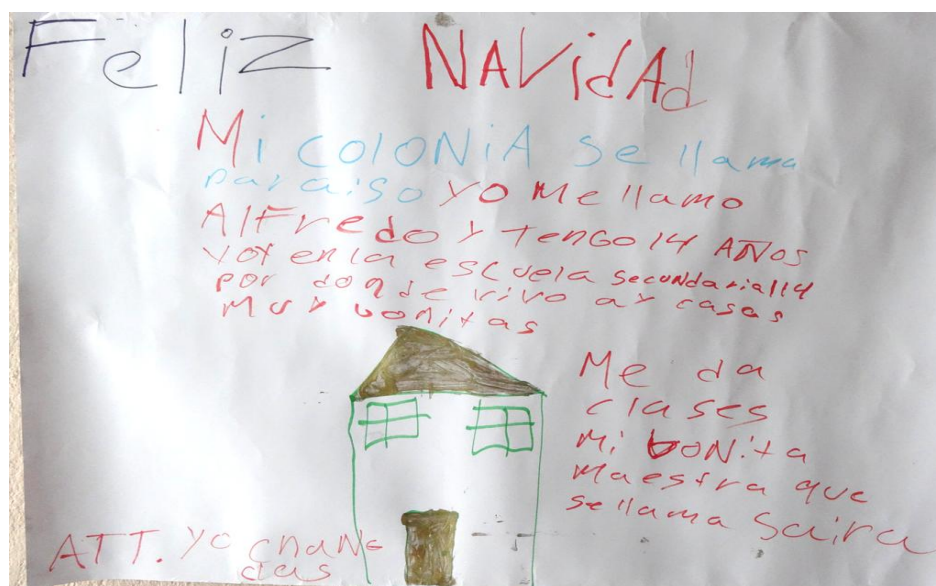 Feliz NAVidAd
Mi COlONiA se llama
paraiso yo Me llamo
AlFredo y teNGO 14 AÑOS
voy en la escuela secundaria 114
por donde vivo ay casas
muy bonitas
Me da
clases
mi boNita
maestra que
se llama Saira
ATT. yo